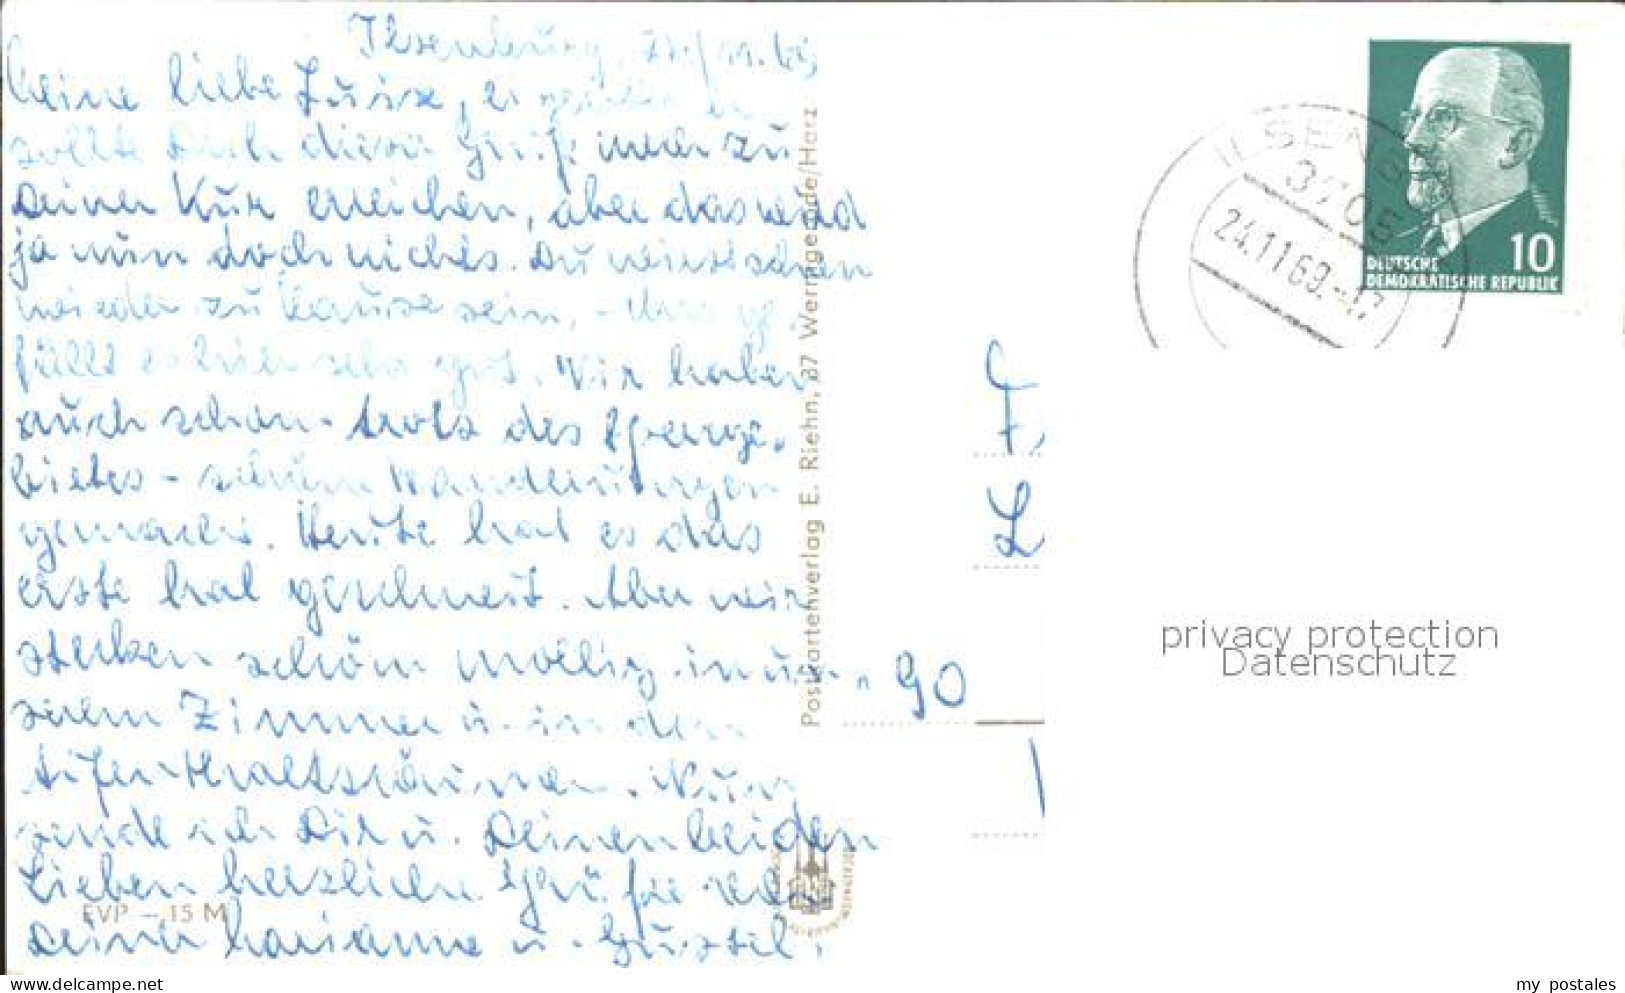 Ilsenburg, 24/11.69
Meine liebe Luise, es
sollte Dich dieser Gruß noch zu
Deiner Kur erreichen, aber das wird
ja nun doch nichts. Du wirst schon
wieder zu Hause sein, - Uns ge-
fällt es hier sehr gut. Wir haben
auch schon - trotz des Sperrge-
bietes - schöne Wanderungen
gemacht. Heute hat es das
erste Mal geschneit. Aber wir
stecken schön mollig in un-
serem Zimmer u. in den
Aufenthaltsräumen. Nun
sende ich Dir u. Deinen beiden
Lieben herzliche Grüße
Deine Marianne u. Gustel.
EVP -,15 M
Postkartenverlag E. Riehn, 37 Wernigerode/Harz
ILSENB
3705
24.11.69.-17
10
DEUTSCHE
DEMOKRATISCHE REPUBLIK
F.
L
90
privacy protection
Datenschutz
delcampe.net
my_postales